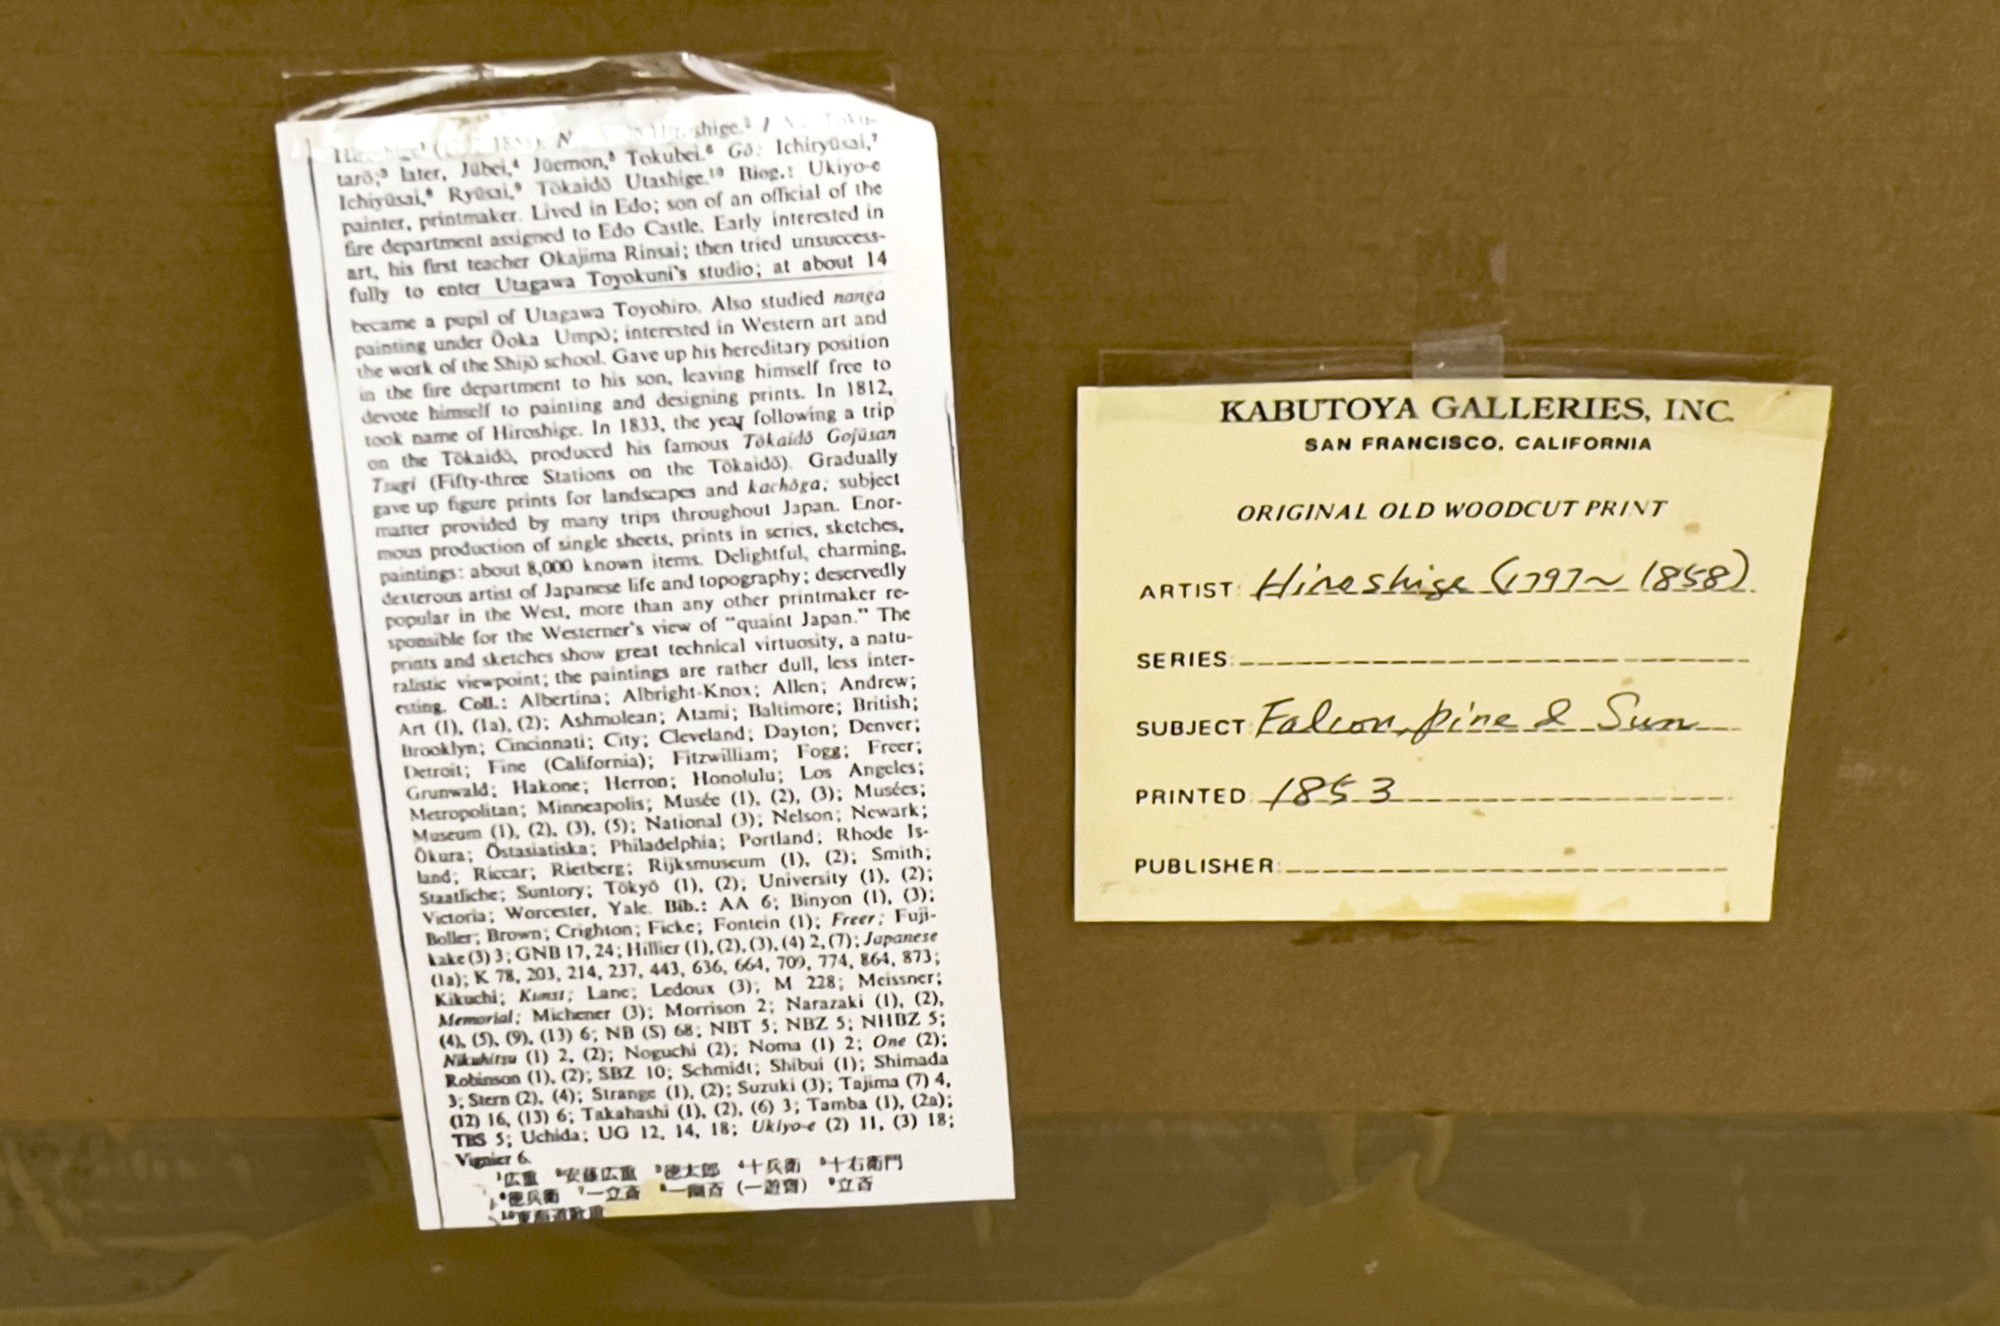 Hiroshige¹ Hiroshige.² Toku-
tarō;³ later, Jūbei,⁴ Jūemon,⁵ Tokubei.⁶ Gō: Ichiryūsai,⁷
Ichiyūsai,⁸ Ryūsai,⁹ Tōkaidō Utashige.¹⁰ Biog.: Ukiyo-e
painter, printmaker. Lived in Edo; son of an official of the
fire department assigned to Edo Castle. Early interested in
art, his first teacher Okajima Rinsai; then tried unsuccess-
fully to enter Utagawa Toyokuni's studio; at about 14
became a pupil of Utagawa Toyohiro. Also studied nanga
painting under Ōoka Umpō; interested in Western art and
the work of the Shijō school. Gave up his hereditary position
in the fire department to his son, leaving himself free to
devote himself to painting and designing prints. In 1812,
took name of Hiroshige. In 1833, the year following a trip
on the Tōkaidō, produced his famous Tōkaidō Gojūsan
Tsugi (Fifty-three Stations on the Tōkaidō). Gradually
gave up figure prints for landscapes and kachōga; subject
matter provided by many trips throughout Japan. Enor-
mous production of single sheets, prints in series, sketches,
paintings: about 8,000 known items. Delightful, charming,
dexterous artist of Japanese life and topography; deservedly
popular in the West, more than any other printmaker re-
sponsible for the Westerner's view of "quaint Japan." The
prints and sketches show great technical virtuosity, a natu-
ralistic viewpoint; the paintings are rather dull, less inter-
esting. Coll.: Albertina; Albright-Knox; Allen; Andrew;
Art (1), (1a), (2); Ashmolean; Atami; Baltimore; British;
Brooklyn; Cincinnati; City; Cleveland; Dayton; Denver;
Detroit; Fine (California); Fitzwilliam; Fogg; Freer;
Grunwald; Hakone; Herron; Honolulu; Los Angeles;
Metropolitan; Minneapolis; Musée (1), (2), (3); Musées;
Museum (1), (2), (3), (5); National (3); Nelson; Newark;
Ōkura; Östasiatiska; Philadelphia; Portland; Rhode Is-
land; Riccar; Rietberg; Rijksmuseum (1), (2); Smith;
Staatliche; Suntory; Tōkyō (1), (2); University (1), (2);
Victoria; Worcester, Yale. Bib.: AA 6; Binyon (1), (3);
Boller; Brown; Crighton; Ficke; Fontein (1); Freer; Fuji-
kake (3) 3; GNB 17, 24; Hillier (1), (2), (3), (4) 2, (7); Japanese
(1a); K 78, 203, 214, 237, 443, 636, 664, 709, 774, 864, 873;
Kikuchi; Kunst; Lane; Ledoux (3); M 228; Meissner;
Memorial; Michener (3); Morrison 2; Narazaki (1), (2),
(4), (5), (9), (13) 6; NB (S) 68; NBT 5; NBZ 5; NHBZ 5;
Nikuhitsu (1) 2, (2); Noguchi (2); Noma (1) 2; One (2);
Robinson (1), (2); SBZ 10; Schmidt; Shibui (1); Shimada
3; Stern (2), (4); Strange (1), (2); Suzuki (3); Tajima (7) 4,
(12) 16, (13) 6; Takahashi (1), (2), (6) 3; Tamba (1), (2a);
TBS 5; Uchida; UG 12, 14, 18; Ukiyo-e (2) 11, (3) 18;
Vignier 6.
¹広重 ²安藤広重 ³徳太郎 ⁴十兵衛 ⁵十右衛門
⁶徳兵衛 ⁷一立斎 ⁸一幽斎 (一遊齋) ⁹立斎
¹⁰東海道歌重
KABUTOYA GALLERIES, INC.
SAN FRANCISCO, CALIFORNIA
ORIGINAL OLD WOODCUT PRINT
ARTIST: Hiroshige (1797~1858)
SERIES:
SUBJECT: Falcon, pine & Sun
PRINTED: 1853
PUBLISHER: